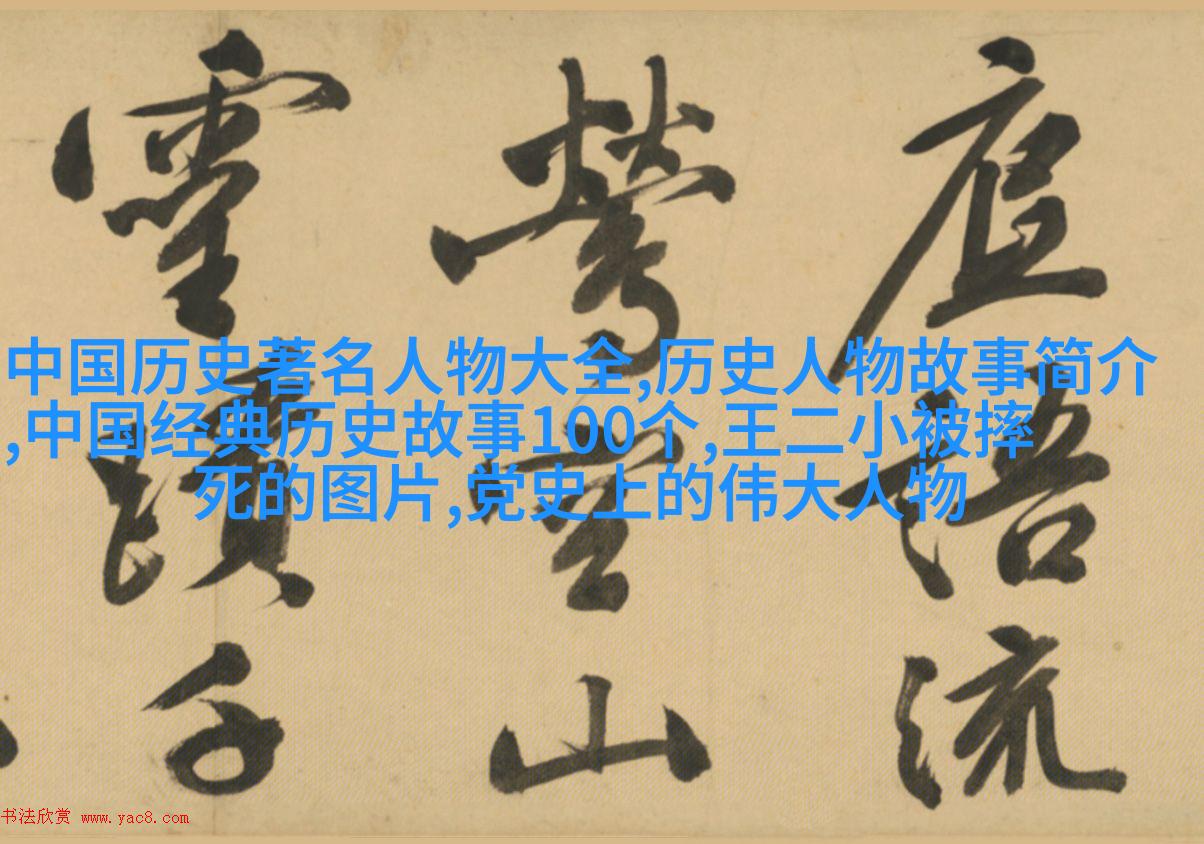 中国历史著名人物大全,历史人物故事简介
,中国经典历史故事100个,王二小被摔
死的图片,党史上的伟大人物
語流
鶯空山
靈蹟千
书法欣赏 www.yac8.com